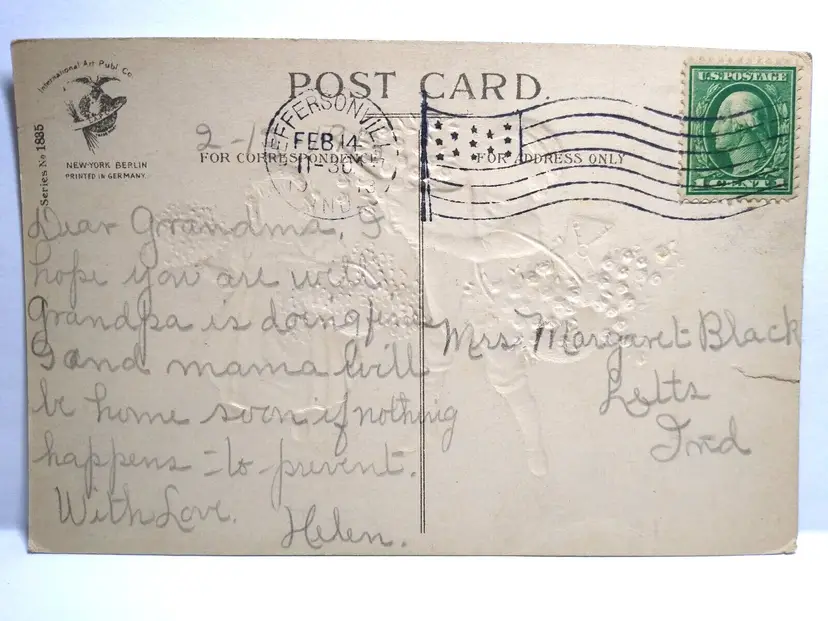 International Art Publ. Co.
NEW-YORK BERLIN
PRINTED IN GERMANY
Series No 1885
POST CARD.
FOR CORRESPONDENCE
FOR ADDRESS ONLY
JEFFERSONVILLE
FEB 14
11-30
IND.
U.S. POSTAGE
1 CENT 1
Dear Grandma, I
hope you are well
Grandpa is doing fine
I and mama will
be home soon if nothing
happens to prevent.
With Love.
Helen.
Mrs Margaret Black
Letts
Ind